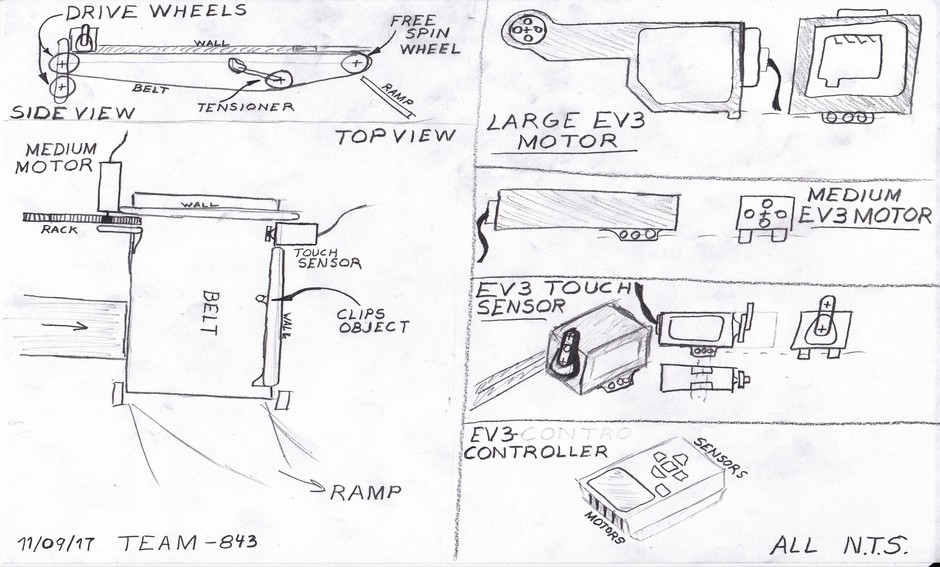 DRIVE WHEELS
WALL
FREE
SPIN
WHEEL
BELT
TENSIONER
RAMP
SIDE VIEW
TOP VIEW
MEDIUM
MOTOR
WALL
RACK
TOUCH
SENSOR
BELT
WALL
CLIPS
OBJECT
RAMP
11/09/17 TEAM-843
LARGE EV3
MOTOR
MEDIUM
EV3 MOTOR
EV3 TOUCH
SENSOR
EV3-CONTRO
CONTROLLER
SENSORS
MOTORS
ALL N.T.S.